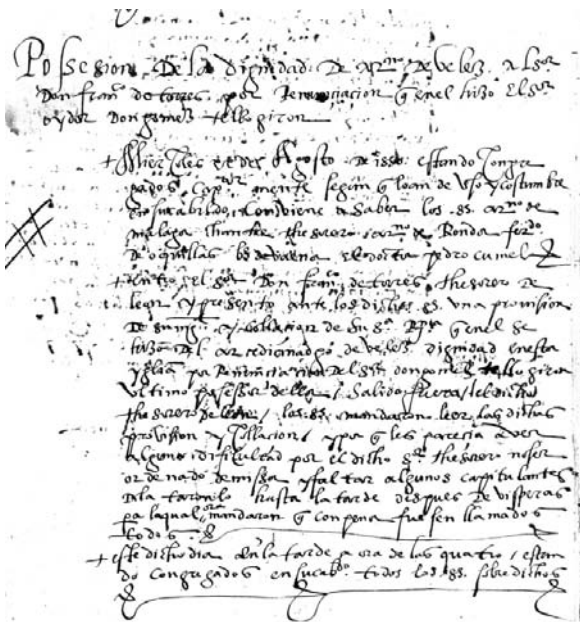 Possesion De la Dignidad De arno De velez a l sor
Don franco de torres por Renunciacion q en el hizo El sor
oydor Don gomez tello giron
+ Miercoles de Agosto De 155 estando Congre
gados Capitularmente segun q lo an de Uso y costumbre
en su cabildo, Conviene a Saber los ss. arno de
malaga thesorero, arno de Ronda
De oquillas El dotor pedro cumel
+ Entro El sor Don franco de torres, thesorero De
leon y presento ante los dichos ss. una provision
De su mgt y collacion de Su Sa Rma q en el se
hizo Del arcedianadgo de velez dignidad en esta
yglia por Renunciacion del sor don gomez tello giron
Ultimo posessor della / Salido fuera / el dicho
thesorero de leon / los ss. mandaron leer las dichas
provission y Collacion / y pa q les parecia aver
alguna dificultad por el dicho sr thesorero no ser
ordenado de missa y faltar algunos capitulantes
hasta la tarde despues De visperas
pa la qual ora mandaron q con pena fuesen llamados
todos
+ este dicho dia En la tarde a ora de las quatro / estan
do congregados en su cabdo todos los ss. sobre dichos